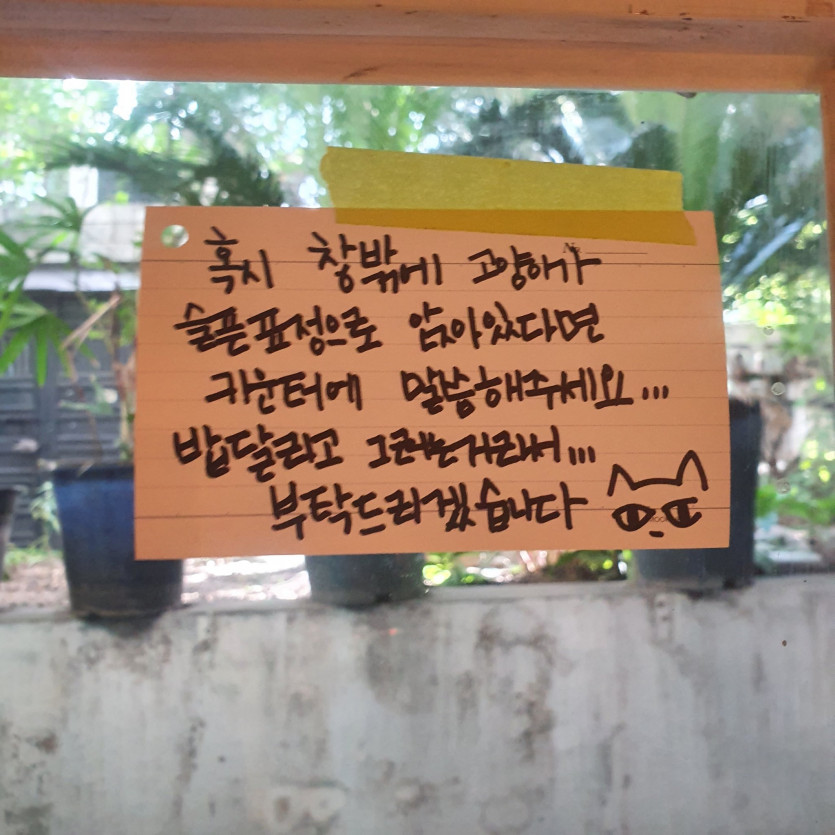 혹시 창밖에 고양이가
슬픈표정으로 앉아있다면
카운터에 말씀해주세요...
밥달라고 그러는거라서...
부탁드리겠습니다